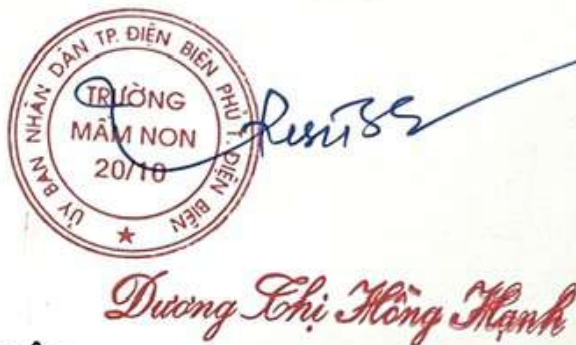 ỦY BAN NHÂN DÂN TP. ĐIỆN BIÊN PHỦ T. ĐIỆN BIÊN
TRƯỜNG
MẦM NON
20/10
Dương Thị Hồng Hạnh